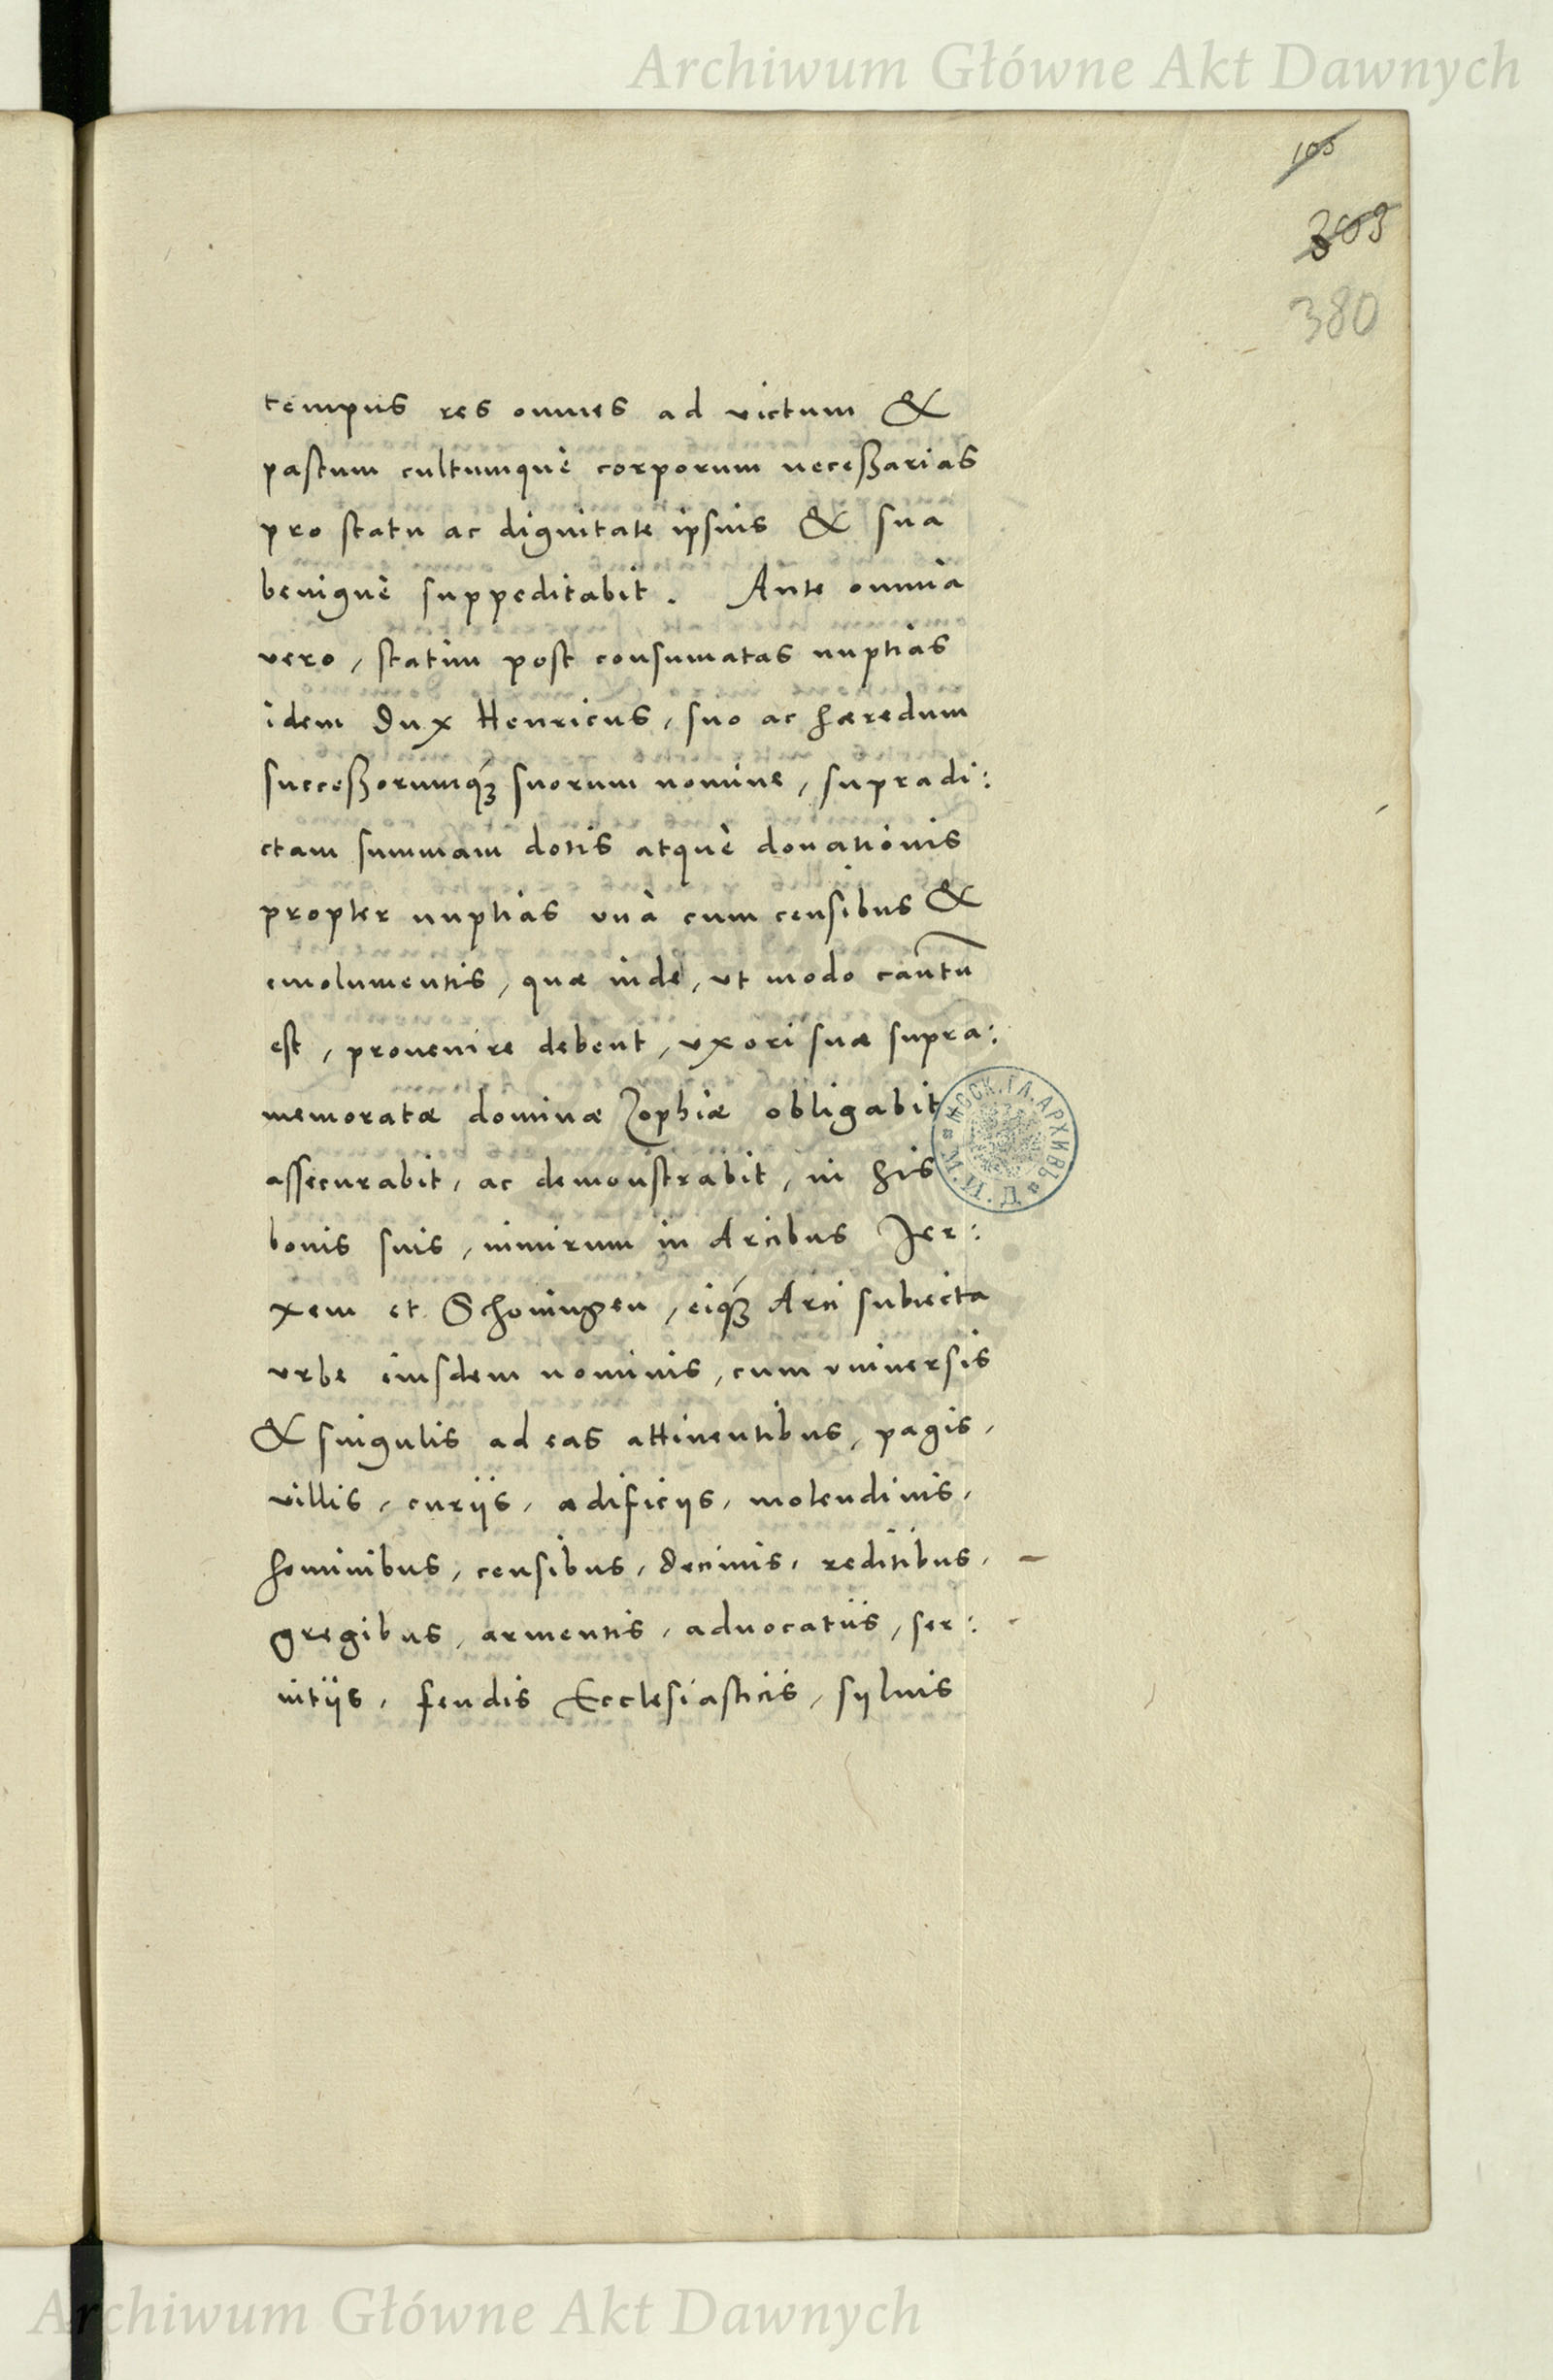 Archiwum Główne Akt Dawnych
105
309
380
tempus res omnes ad victum &
pastum cultumquè corporum neceßarias
pro statu ac dignitate ipsius & sua
benignè suppeditabit. Ante omnia
vero, statim post consumatas nuptias
idem Dux Henricus, suo ac hæredum
succeßorumqȝ suorum nomine, supradi:
ctam summam dotis atquè donationis
propter nuptias unà cum censibus &
emolumentis, quæ inde, ut modo cautū
est, provenire debent, uxori suæ supra:
memoratæ dominæ Zophiæ obligabit
assecurabit, ac demonstrabit, in his
bonis suis, nimirum in Arcibus Jer:
xem et Schoningen, eiqȝ Arci subiecta
urbe eiusdem nominis, cum universis
& singulis ad eas attinentibus, pagis,
villis, curijs, ædificijs, molendinis,
hominibus, censibus, decimis, reditibus,
gregibus, armentis, advocatiis, ser:
vitijs, feudis Ecclesiasticis, sylvis
ССК.ГЛ.АРХИВЪ
Archiwum Główne Akt Dawnych